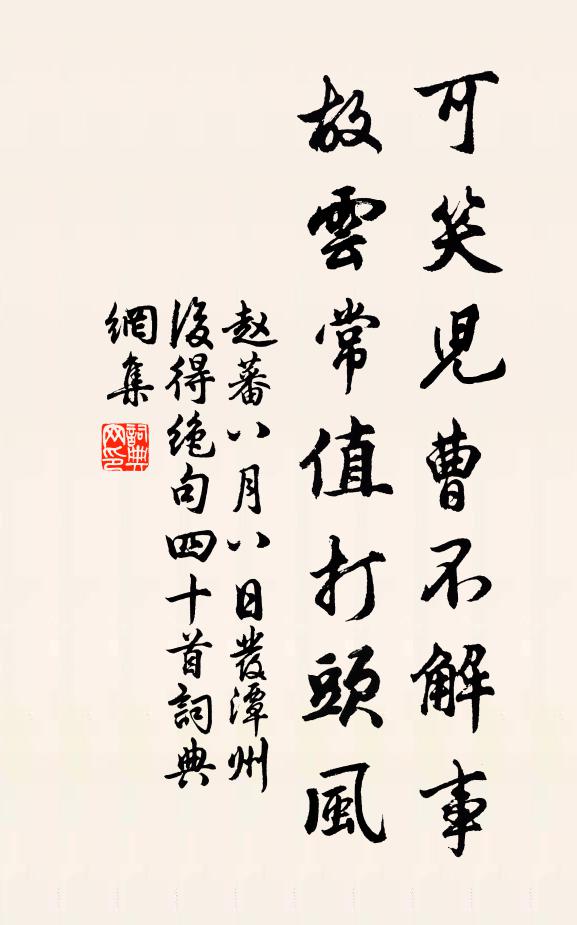 可笑児曹不解事
故雲常值打頭風
赵蕃八月八日發潭州
後得绝句四十首詞典
網集
詞典
网印